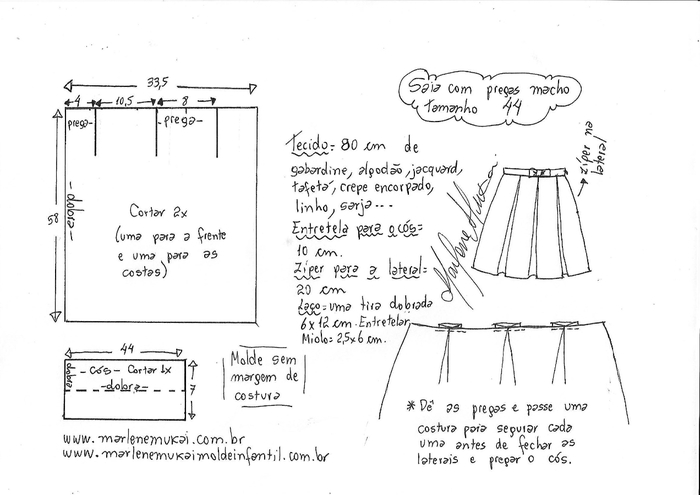 33,5
4
10,5
8
prega-
-prega-
58
-dobra-
Cortar 2x
(uma para a frente
e uma para as
costas)
Saia com pregas macho
tamanho 44
zíper na
lateral
Tecido= 80 cm de
gabardine, algodão, jacquard,
tafetá, crepe encorpado,
linho, sarja...
Entretela para o cós=
10 cm.
Zíper para a lateral=
20 cm
Laço=uma tira dobrada
6x12 cm. Entretelar
Miolo=2,5x6 cm.
Marlene Mukai
44
dobra
-cós- Cortar 1x
-dobra-
7
Molde sem
margem de
costura
www.marlenemukai.com.br
www.marlenemukaimoldeinfantil.com.br
* Dê as pregas e passe uma
costura para segurar cada
uma antes de fechar as
laterais e pregar o cós.